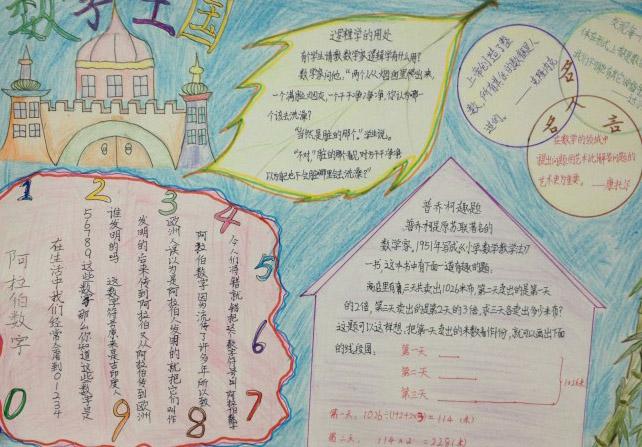 数学王国
逻辑学的用处
有学生请教数学家逻辑学有什么用?
数学家问他,“两个人从烟囱里爬出来,
一个满脸烟灰,一个干干净净,你认为哪一
个该去洗澡?”
“当然是脏的那个。”学生说。
“不对,脏的那个看见对方干干净净
以为自己也不会脏哪里会去洗澡?”
上帝创造了整
数,所有其余的数都是人
造的。
名人言
在数学的领域中
提出问题的艺术比解答问题的
艺术更为重要。
——康托尔
普乔柯趣题
普乔柯是原苏联著名的
数学家,1951年写成《小学数学教学法》
一书,这本书中有下面一道有趣的题:
商店里有三天共卖出1026米布,第二天卖出的是第一天
的2倍,第三天卖出的是第二天的3倍,求三天各卖出多少米布?
这题可以这样想:把第一天卖出的米数看作1份,就可以画出下面
的线段图:
第一天
第二天
第三天
1026米
第一天:1026÷(1+2+2×3)=114(米)
第二天:114×2=228(米)
1
2
3
4
5
6
7
8
9
0
阿拉伯数字
在生活中我们经常会看到01234
56789这些数字那么你知道这些数字是
谁发明的吗 这数字符号原来是古印度人
发明的后来传到阿拉伯又从阿拉伯传到欧洲
欧洲人误以为是阿拉伯人发明的就把它们叫作
阿拉伯数字因为流传了许多年所以数
令人们将错就错把数字符号叫阿拉伯数字